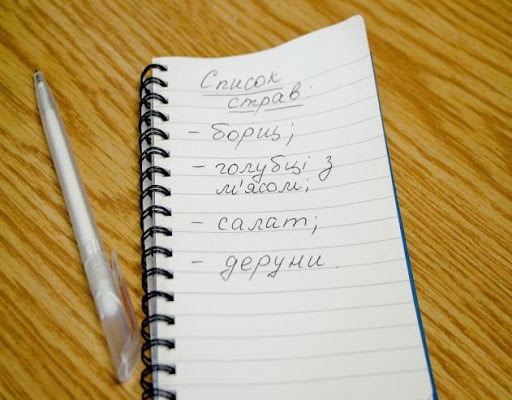 Список
страв:
- борщ;
- голубці з
м'ясом;
- салат;
- деруни.